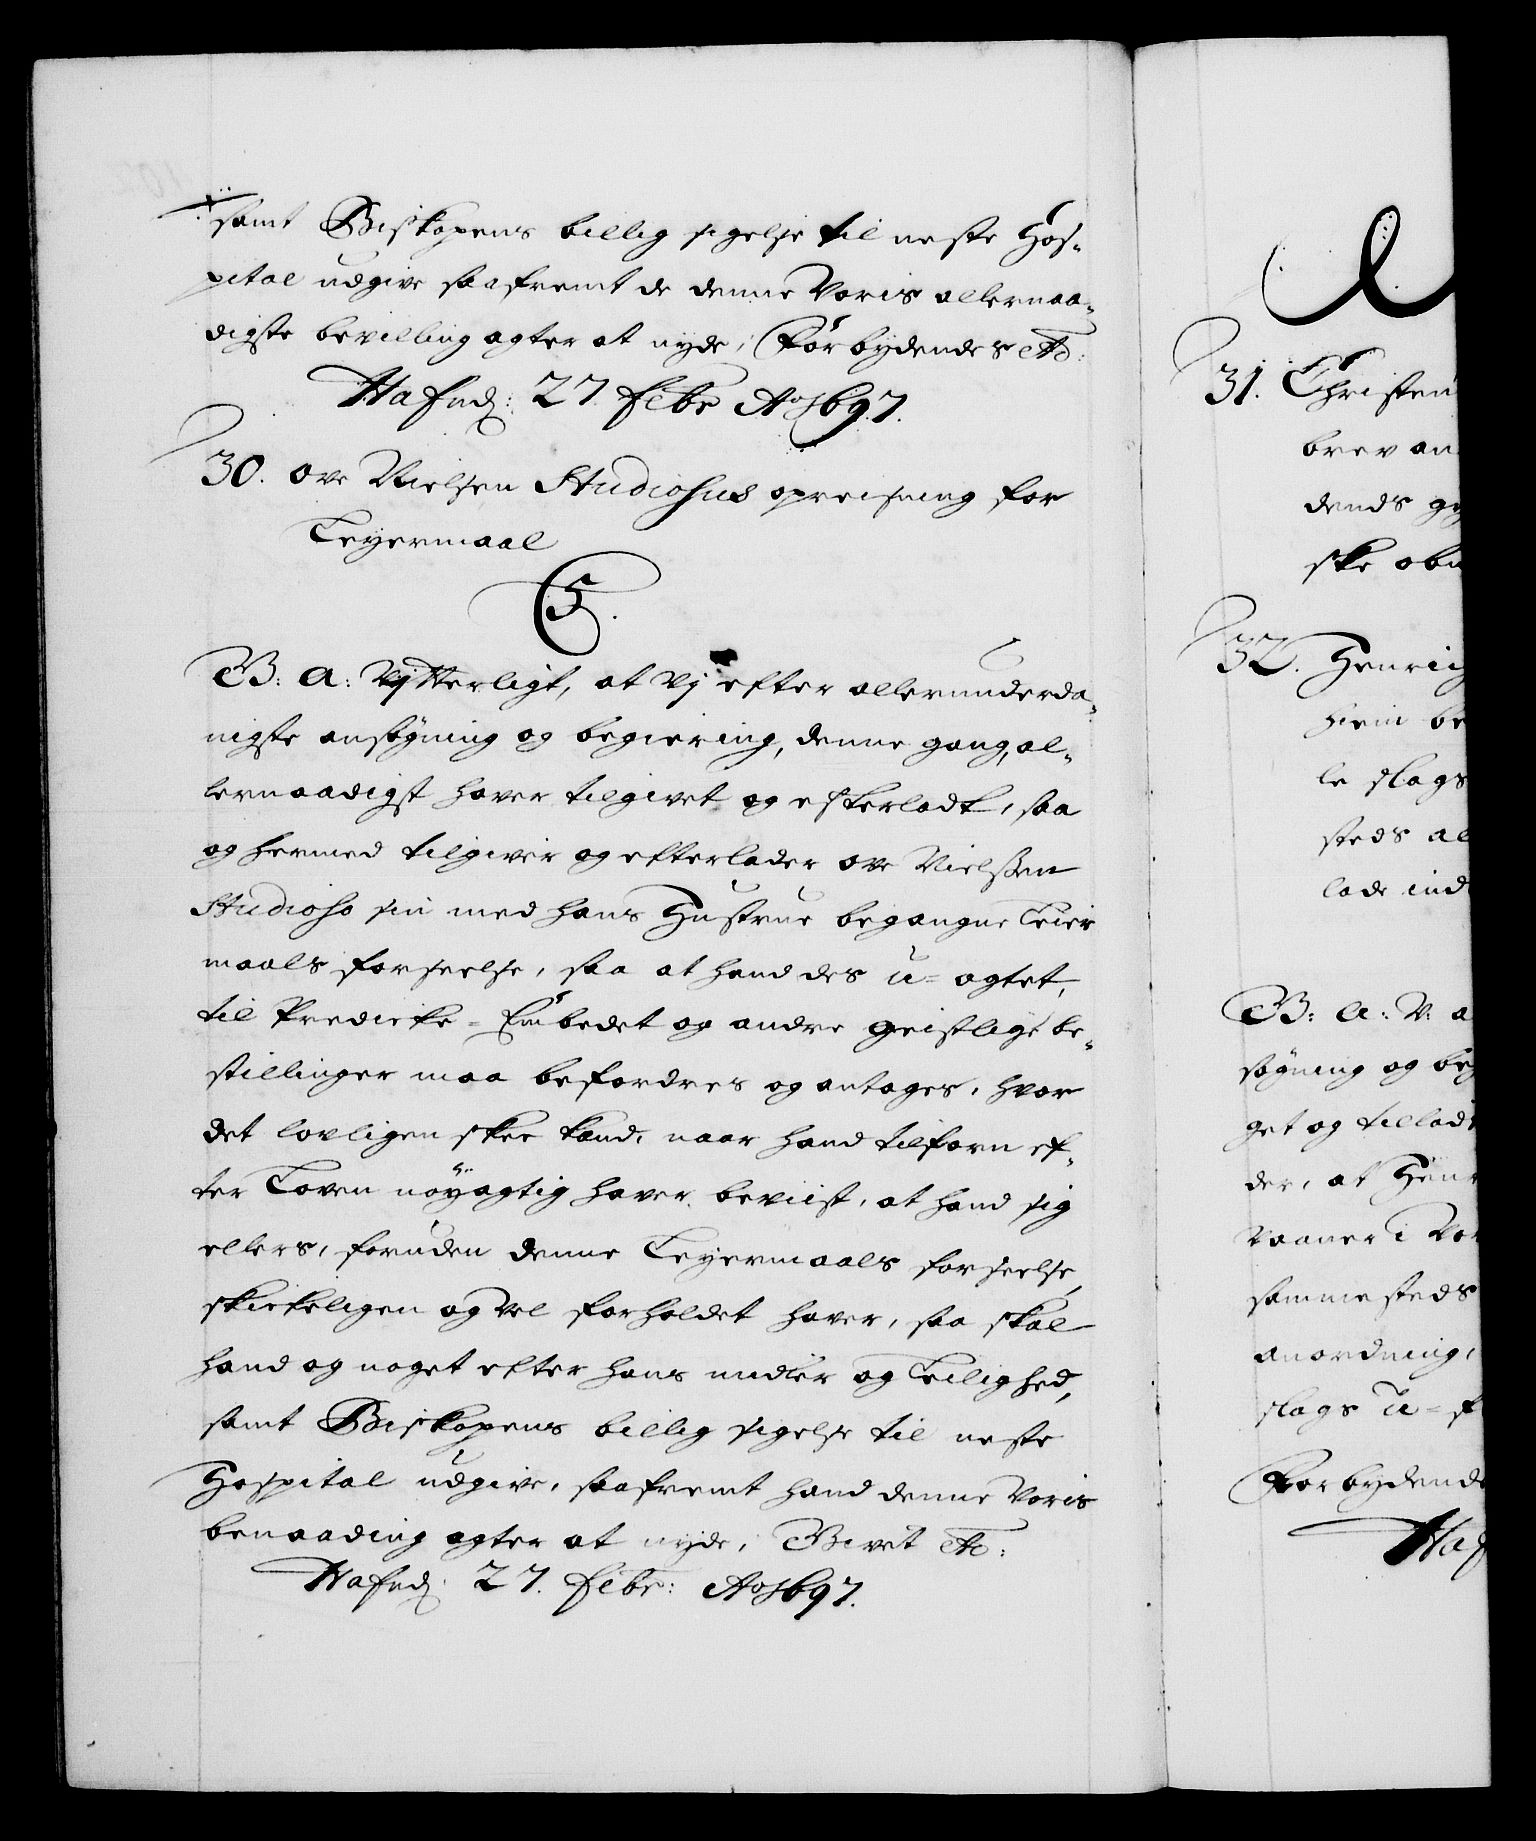 samt Biskopens billig sigelse til neste Hos-
pital udgive saafremt de denne Voris allernaa-
digste bevilling agter at nyde, Forbydendes etc:
Hafnd: 27 Febr Ao 1697.
30. Ove Nielsen Studiosus opreisning for
Leyermaal
C5.
G: A: Vitterligt, at Vj efter allerunderda-
nigste ansøgning og begiering, denne gang, al-
lernaadigst haver tilgivet og efterladt, saa
og hermed tilgiver og efterlader Ove Nielssen
Studioso sin med hans Hustrue begangne Leier
maals forseelse, saa at hand des u-agtet,
til Predicke-Embedet og andre geistlige be-
stillinger maa befordres og antages, hvor
det lovligen skee kand, naar hand tilforn ef-
ter Loven nøyagtig haver beviist, at hand sig
ellers, foruden denne Leyermaals forseelse,
skickeligen og vel forholdet haver, saa skal
hand og noget efter hans midler og Leilighed,
samt Biskopens billig sigelse til neste
Hospital udgive, saafremt hand denne Voris
benaading agter at nyde, Givet etc:
Hafnd: 27. Febr: Ao 1697.
31. Christen
brev an
dends
ske
32. Henrich
hiem be
le slags
steds al
lade ind
G: A: V: a
søgning og beg
get og tillad
der, at Henr
Vaaner i Vor
samme steds
anordning,
slags U-f
Forbydende
Haf